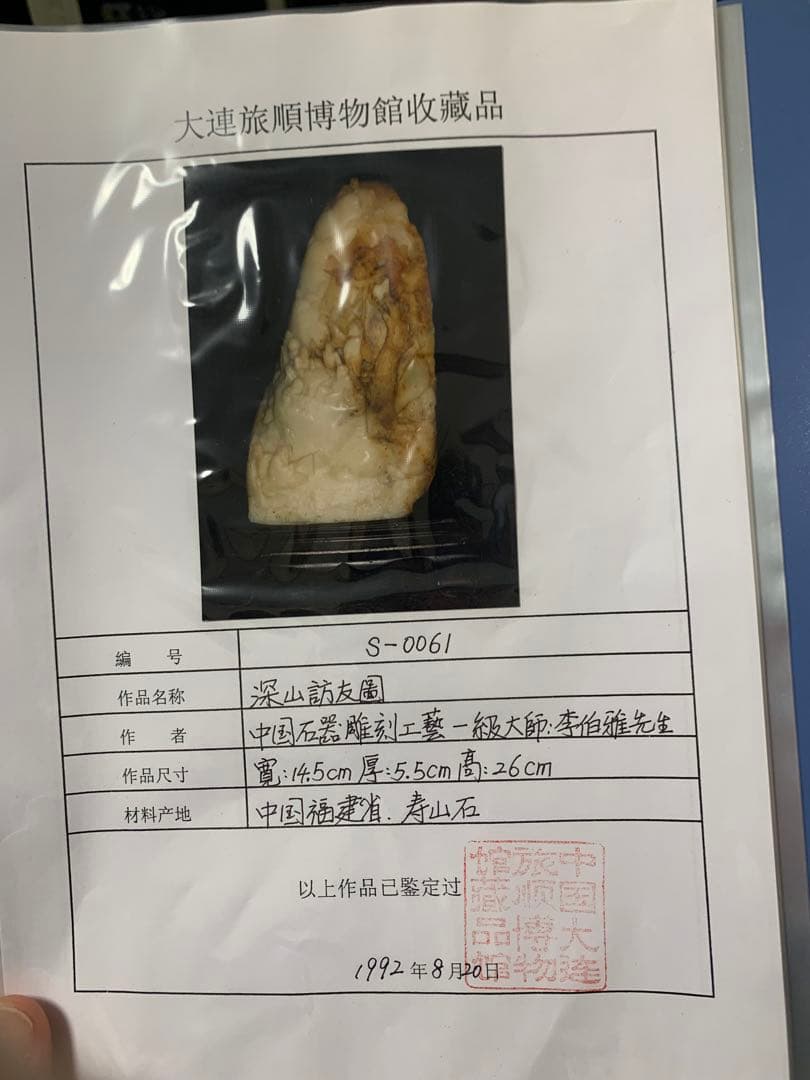 大連旅順博物館收藏品
編 号 S-0061
作品名称 深山訪友圖
作 者 中国石器雕刻工藝一級大師:李伯雅先生
作品尺寸 寬:14.5cm 厚:5.5cm 高:26cm
材料产地 中国福建省.寿山石
以上作品已鑒定过
1992年8月20日
中国大连
旅顺博物
馆藏品馆